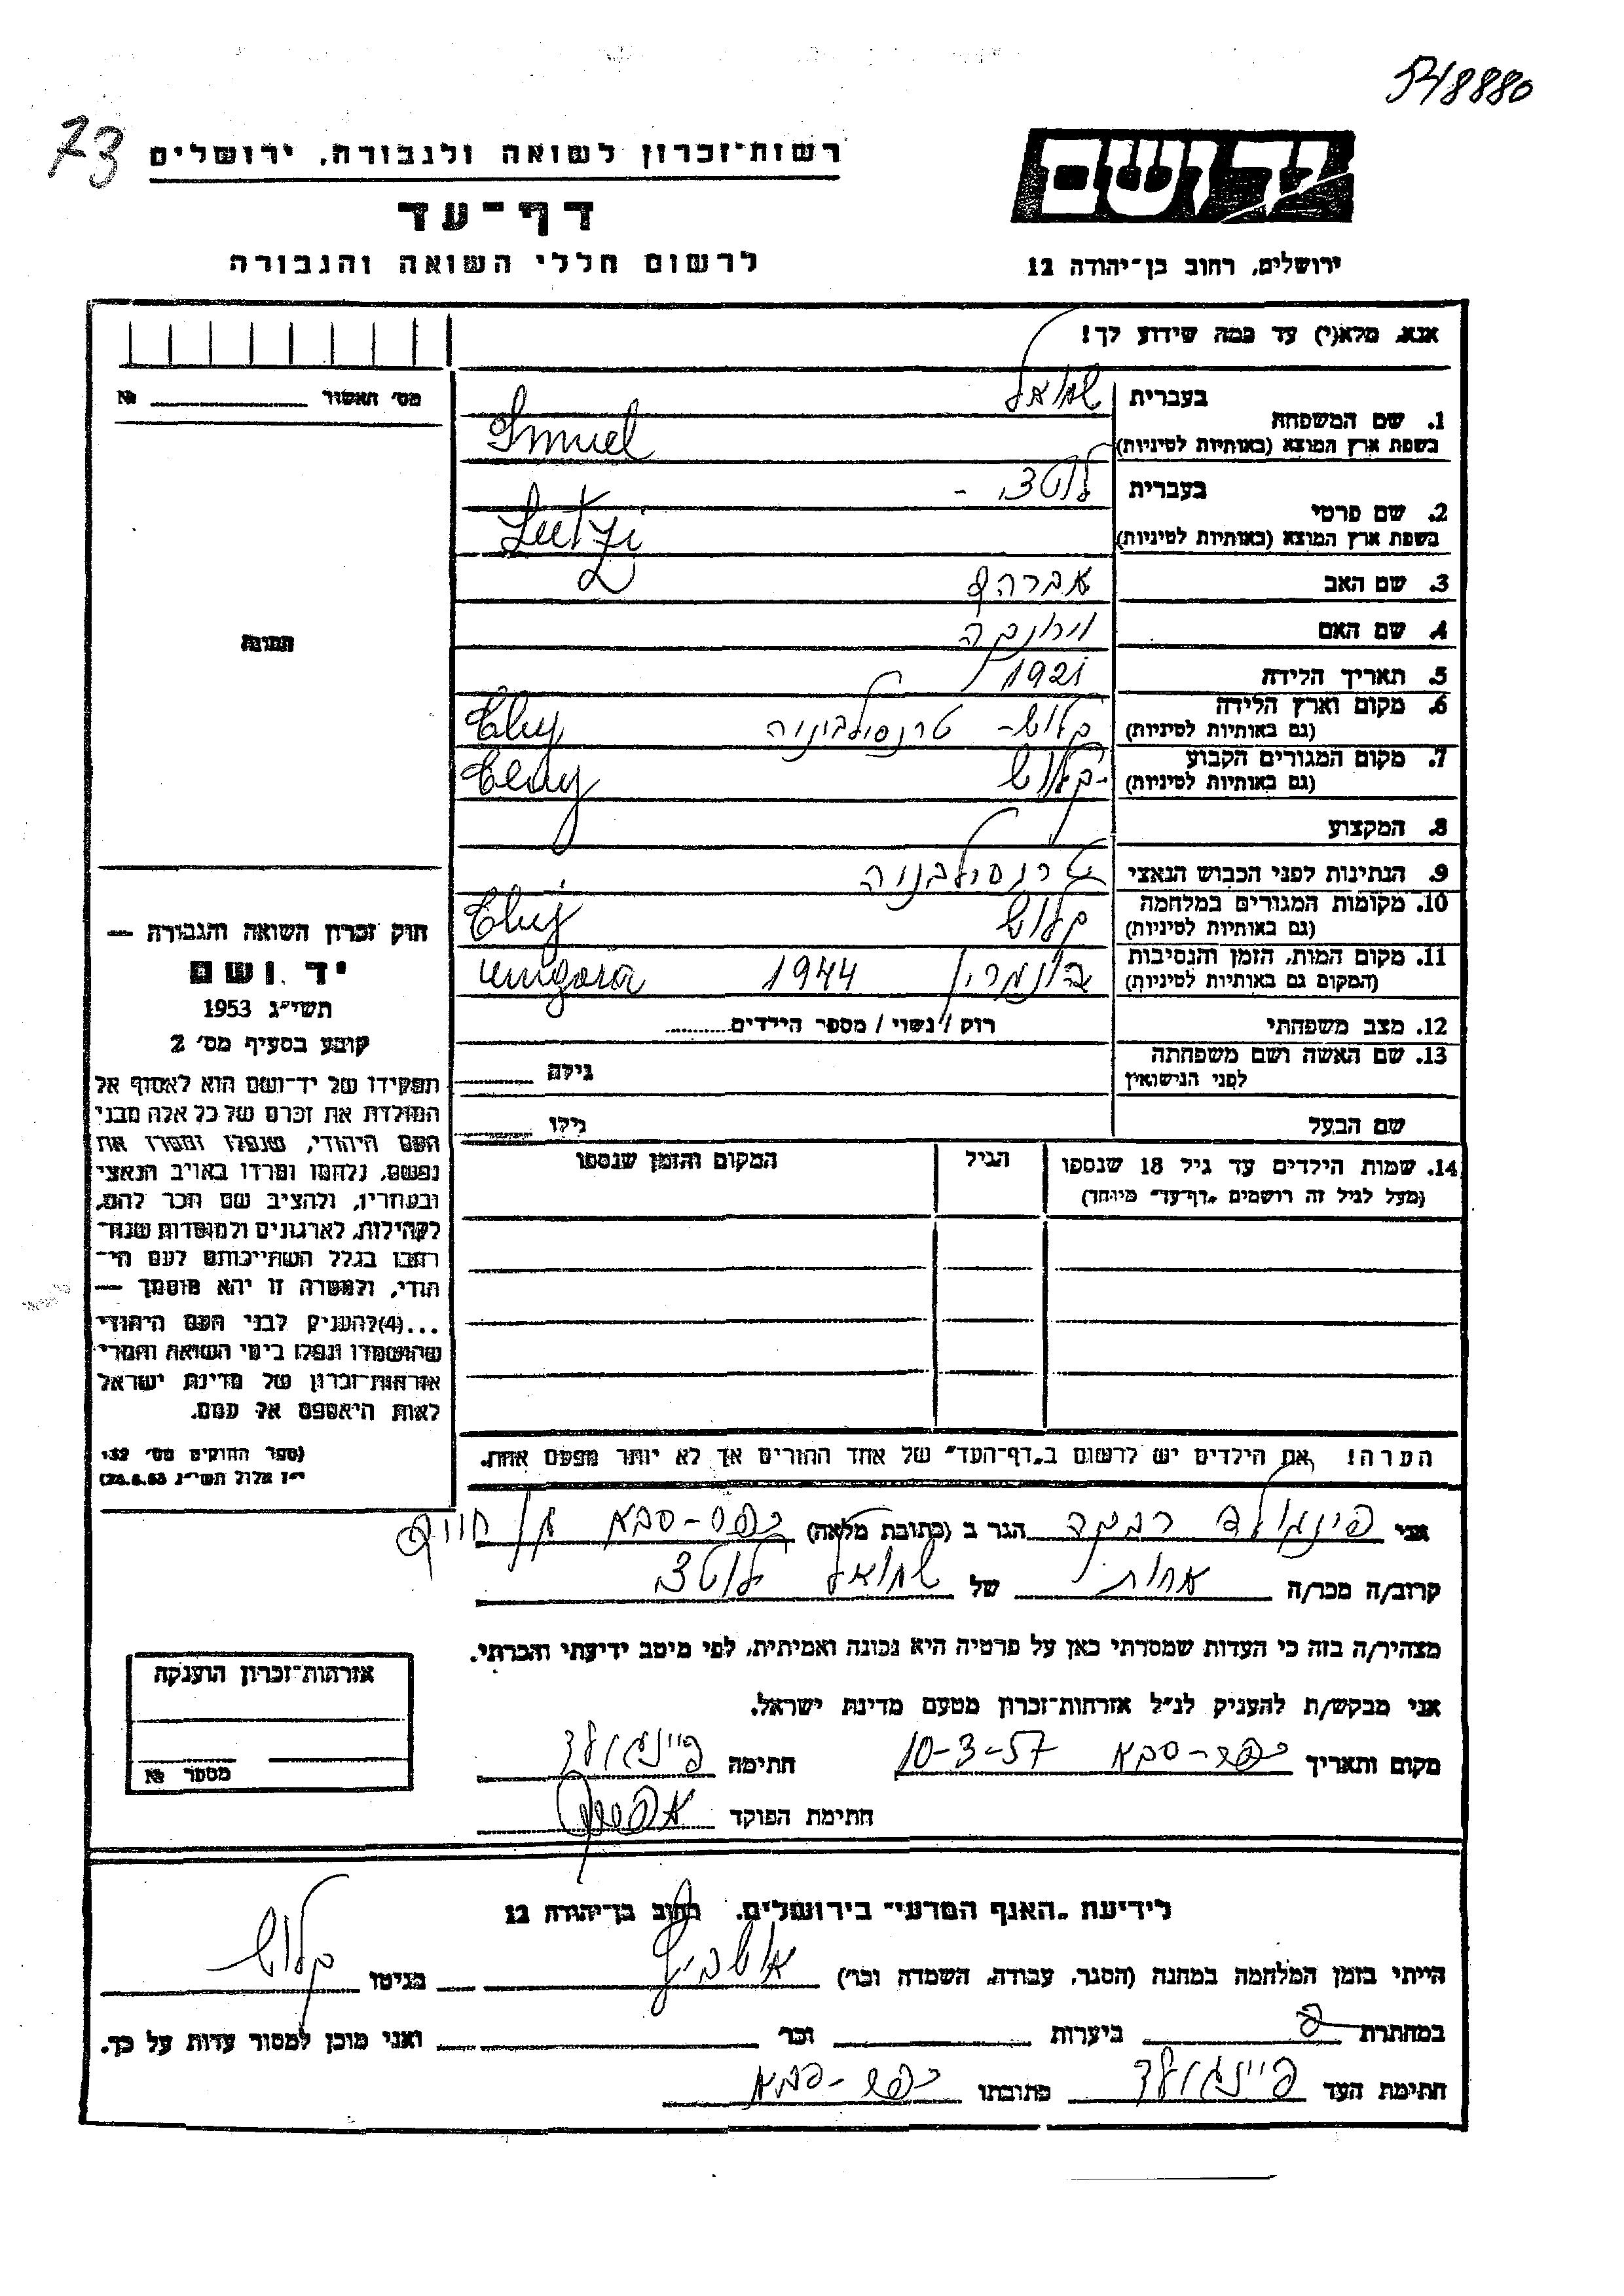 548880
73
יד ושם
רשות־זכרון לשואה ולגבורה, ירושלים
דף־עד
לרשום חללי השואה והגבורה
ירושלים, רחוב בן־יהודה 12
אנא, מלא(י) עד כמה שידוע לך!
מס' האשור № 
1. שם המשפחה
בעברית שמואל
בשפת ארץ המוצא (באותיות לטיניות) Smuel
2. שם פרטי
בעברית לוטצי -
בשפת ארץ המוצא (באותיות לטיניות) Lutzi
3. שם האב אברהם
4. שם האם
5. תאריך הלידה 1921
6. מקום וארץ הלידה קלוש - טרנסילבניה
(גם באותיות לטיניות) Cluj
7. מקום המגורים הקבוע קלוש
(גם באותיות לטיניות) Cluj
8. המקצוע
9. הנתינות לפני הכבוש הנאצי טרנסילבניה
10. מקומות המגורים במלחמה קלוש
(גם באותיות לטיניות) Cluj
11. מקום המות, הזמן והנסיבות 1944
(המקום גם באותיות לטיניות) ungara
12. מצב משפחתי רוק / נשוי / מספר הילדים
13. שם האשה ושם משפחתה לפני הנישואין גילה
שם הבעל גילו
14. שמות הילדים עד גיל 18 שנספו הגיל המקום והזמן שנספו
(מעל לגיל זה רושמים „דף־עד" מיוחד)
הערה! את הילדים יש לרשום ב„דף־העד" של אחד ההורים אך לא יותר מפעם אחת.
תמונה
חוק זכרון השואה והגבורה —
יד ושם
תשי"ג 1953
קובע בסעיף מס' 2
תפקידו של יד־ושם הוא לאסוף אל
המולדת את זכרם של כל אלה מבני
העם היהודי, שנפלו ומסרו את
נפשם, נלחמו ומרדו באויב הנאצי
ובעוזריו, ולהציב שם וזכר להם,
לקהילות, לארגונים ולמוסדות שנח־
רבו בגלל השתייכותם לעם הי־
הודי, ולמטרה זו יהא מוסמך —
...(4)להעניק לבני העם היהודי
שהושמדו ונפלו בימי השואה והמרי
אזרחות־זכרון של מדינת ישראל
לאות היאספם אל עמם.
(ספר החוקים מס' 132
י"ז אלול תשי"ג 28.8.53)
אני פינגולד רבקה הגר ב (כתובת מלאה) כפר-סבא
קרוב/ה מכר/ה אחות של שמואל לוטצי
מצהיר/ה בזה כי העדות שמסרתי כאן על פרטיה היא נכונה ואמיתית, לפי מיטב ידיעתי והכרתי.
אני מבקש/ת להעניק לנ"ל אזרחות־זכרון מטעם מדינת ישראל.
מקום ותאריך כפר-סבא 10-3-57 חתימה פיינגולד
חתימת הפוקד
אזרחות־זכרון הוענקה
מספר №
לידיעת „האגף המדעי" בירושלים, רחוב בן־יהודה 12
הייתי בזמן המלחמה במחנה (הסגר, עבודה, השמדה וכו') אושביץ בגיטו קלוש
במחתרת ביערות וכו' ואני מוכן למסור עדות על כך.
חתימת העד פיינגולד כתובתו כפר-סבא